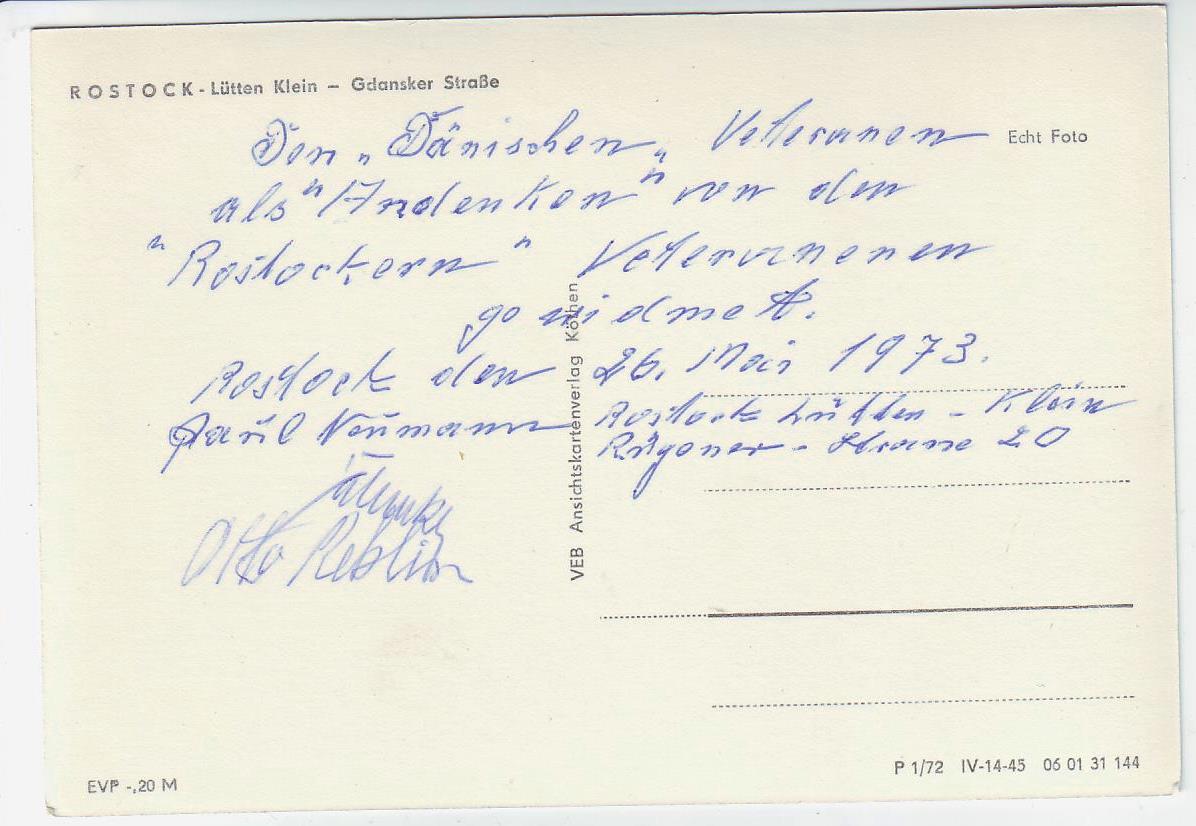 ROSTOCK - Lütten Klein – Gdansker Straße
Echt Foto
Den „Dänischen„ Veteranen
als "Andenken" von den
"Rostockern" Veteranenen
gewidmet.
Rostock den 26. Mai 1973.
Paul Neumann Rostock Lütten-Klein
Rügener-Strane 20
Otto
VEB Ansichtskartenverlag Köthen
EVP -,20 M
P 1/72 IV-14-45 06 01 31 144